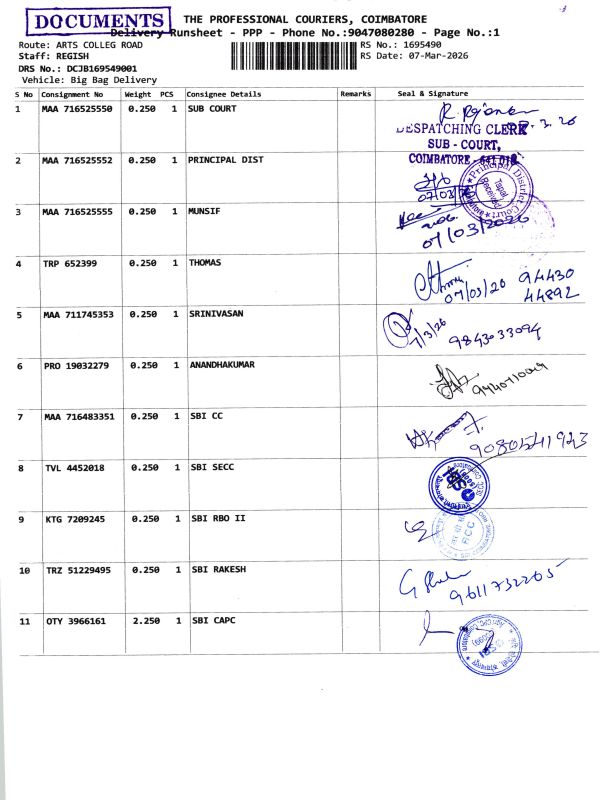 DOCUMENTS
THE PROFESSIONAL COURIERS, COIMBATORE
Delivery Runsheet - PPP - Phone No.:9047080280 - Page No.:1
Route: ARTS COLLEG ROAD
Staff: REGISH
DRS No.: DCJB169549001
Vehicle: Big Bag Delivery
RS No.: 1695490
RS Date: 07-Mar-2026
S No Consignment No Weight PCS Consignee Details Remarks Seal & Signature
1 MAA 716525550 0.250 1 SUB COURT
DESPATCHING CLERK
SUB - COURT,
COIMBATORE
2 MAA 716525552 0.250 1 PRINCIPAL DIST
Principal District Court
Tapal Received
3 MAA 716525555 0.250 1 MUNSIF
07/03/2026
4 TRP 652399 0.250 1 THOMAS
07/03/26 94430
44892
5 MAA 711745353 0.250 1 SRINIVASAN
7/3/26 9843033094
6 PRO 19032279 0.250 1 ANANDHAKUMAR
7 MAA 716483351 0.250 1 SBI CC
9080541923
8 TVL 4452018 0.250 1 SBI SECC
9 KTG 7209245 0.250 1 SBI RBO II
RCC
10 TRZ 51229495 0.250 1 SBI RAKESH
9611732205
11 OTY 3966161 2.250 1 SBI CAPC